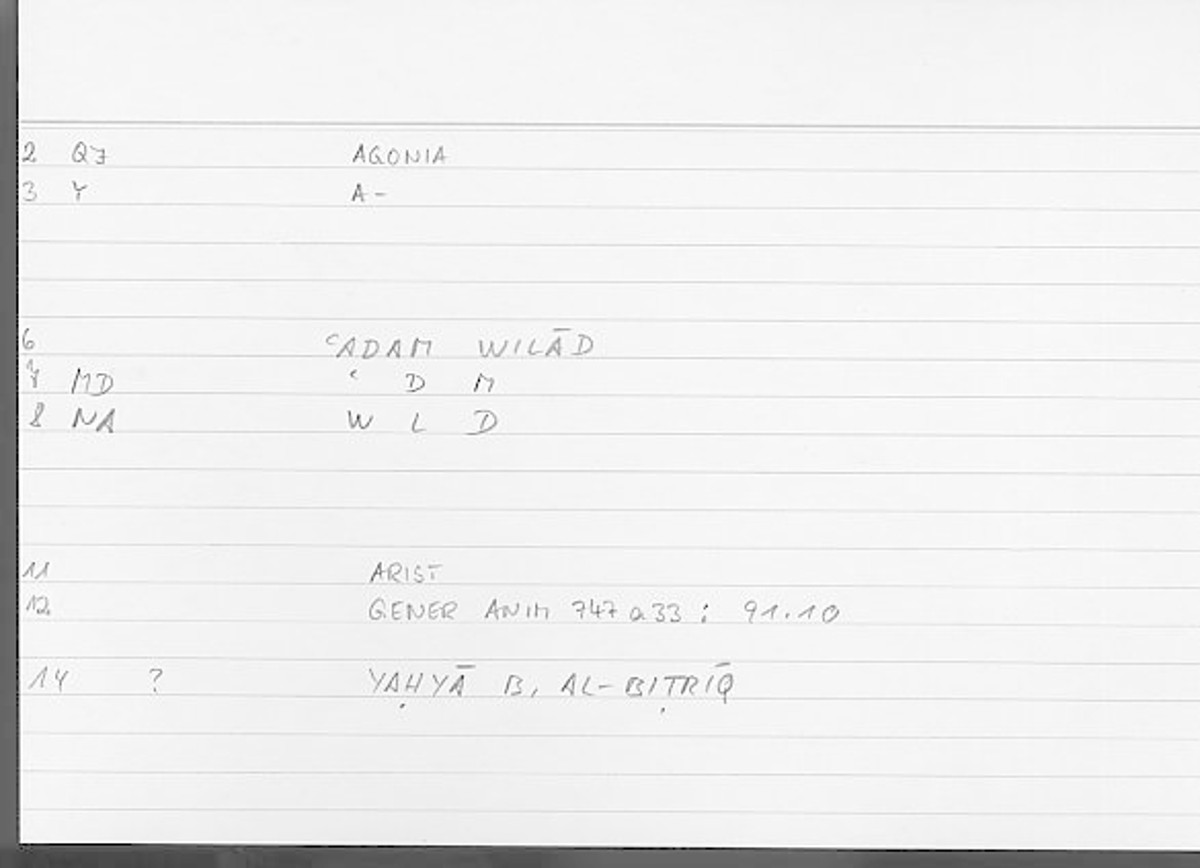 2 QJ AGONIA
3 Y A-
6 ʿADAM WILĀD
7 MD ʿ D M
8 NA W L D
11 ARIST
12 GENER ANIM 747 a 33 : 91.10
14 ? YAḤYĀ B. AL-BIṬRĪQ